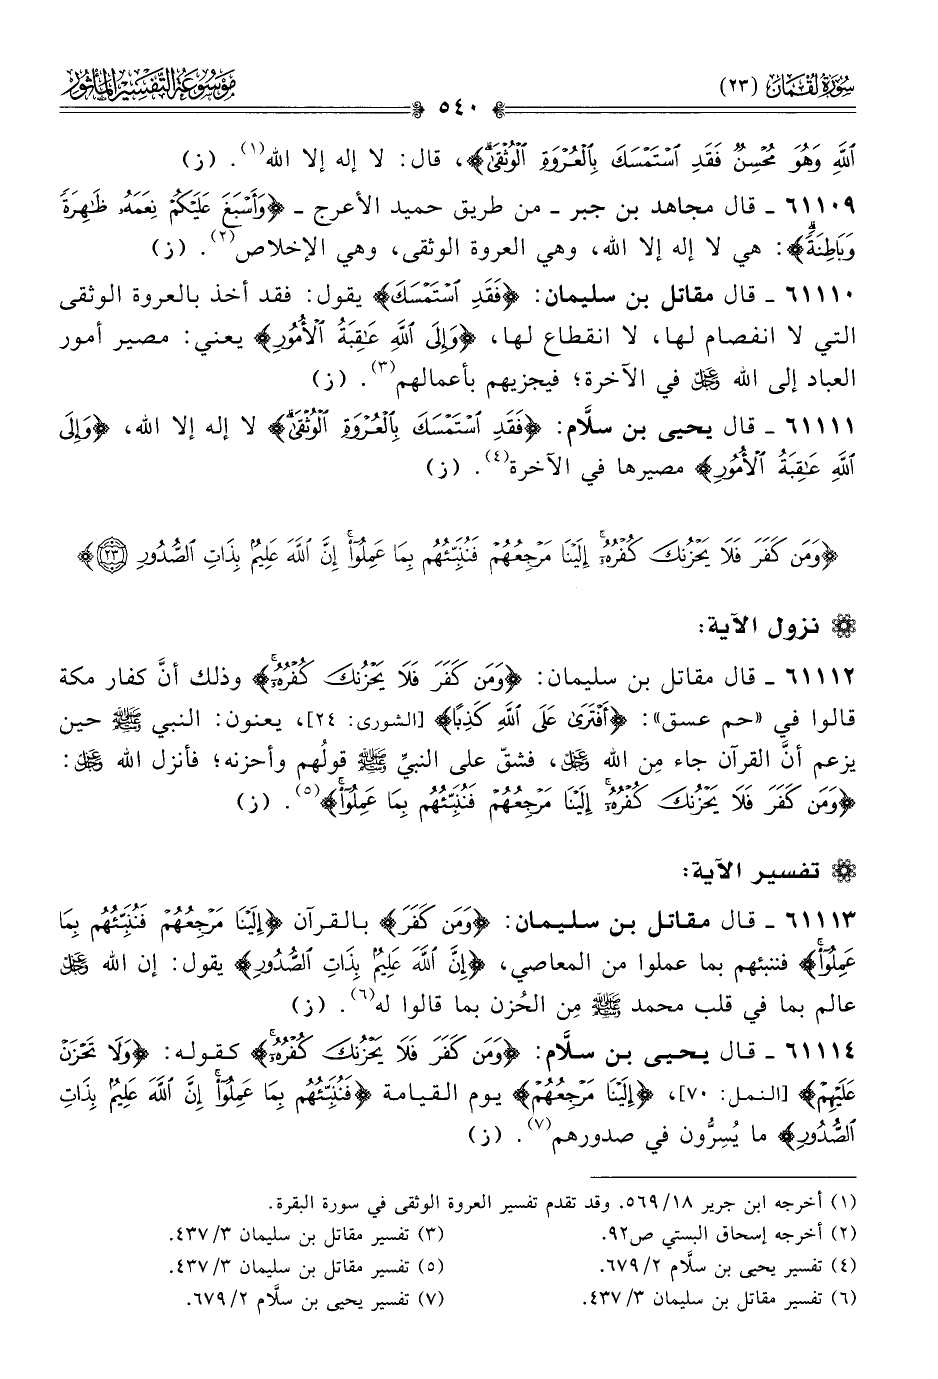 سُورَةُ لُقْمَان (٢٣)
مَوْسُوعَة التَّفْسِيْر المَأْثُور
٥٤٠
ٱللَّهِ وَهُوَ مُحۡسِنٞ فَقَدِ ٱسۡتَمۡسَكَ بِٱلۡعُرۡوَةِ ٱلۡوُثۡقَىٰۗ﴾، قال: لا إله إلا الله(١). (ز)
٦١١٠٩ ـ قال مجاهد بن جبر ـ من طريق حميد الأعرج ـ ﴿وَأَسۡبَغَ عَلَيۡكُمۡ نِعَمَهُۥ ظَٰهِرَةٗ
وَبَاطِنَةٗۗ﴾: هي لا إله إلا الله، وهي العروة الوثقى، وهي الإخلاص(٢). (ز)
٦١١١٠ ـ قال مقاتل بن سليمان: ﴿فَقَدِ ٱسۡتَمۡسَكَ﴾ يقول: فقد أخذ بالعروة الوثقى
التي لا انفصام لها، لا انقطاع لها، ﴿وَإِلَى ٱللَّهِ عَٰقِبَةُ ٱلۡأُمُورِ﴾ يعني: مصير أمور
العباد إلى الله عزوجل في الآخرة؛ فيجزيهم بأعمالهم(٣). (ز)
٦١١١١ ـ قال يحيى بن سلَّام: ﴿فَقَدِ ٱسۡتَمۡسَكَ بِٱلۡعُرۡوَةِ ٱلۡوُثۡقَىٰۗ﴾ لا إله إلا الله، ﴿وَإِلَى
ٱللَّهِ عَٰقِبَةُ ٱلۡأُمُورِ﴾ مصيرها في الآخرة(٤). (ز)
﴿وَمَن كَفَرَ فَلَا يَحۡزُنكَ كُفۡرُهُۥٓۚ إِلَيۡنَا مَرۡجِعُهُمۡ فَنُنَبِّئُهُم بِمَا عَمِلُوٓاْۚ إِنَّ ٱللَّهَ عَلِيمُۢ بِذَاتِ ٱلصُّدُورِ ٢٣﴾
نزول الآية:
٦١١١٢ ـ قال مقاتل بن سليمان: ﴿وَمَن كَفَرَ فَلَا يَحۡزُنكَ كُفۡرُهُۥٓۚ﴾ وذلك أنَّ كفار مكة
قالوا في «حم عسق»: ﴿أَفۡتَرَىٰ عَلَى ٱللَّهِ كَذِبٗا﴾ [الشورى: ٢٤]، يعنون: النبي ﷺ حين
يزعم أنَّ القرآن جاء مِن الله عزوجل، فشقّ على النبيِّ ﷺ قولُهم وأحزنه؛ فأنزل الله عزوجل:
﴿وَمَن كَفَرَ فَلَا يَحۡزُنكَ كُفۡرُهُۥٓۚ إِلَيۡنَا مَرۡجِعُهُمۡ فَنُنَبِّئُهُم بِمَا عَمِلُوٓاْۚ﴾(٥). (ز)
تفسير الآية:
٦١١١٣ ـ قال مقاتل بن سليمان: ﴿وَمَن كَفَرَ﴾ بالقرآن ﴿إِلَيۡنَا مَرۡجِعُهُمۡ فَنُنَبِّئُهُم بِمَا
عَمِلُوٓاْۚ﴾ فننبئهم بما عملوا من المعاصي، ﴿إِنَّ ٱللَّهَ عَلِيمُۢ بِذَاتِ ٱلصُّدُورِ﴾ يقول: إن الله عزوجل
عالم بما في قلب محمد ﷺ مِن الحُزن بما قالوا له(٦). (ز)
٦١١١٤ ـ قال يحيى بن سلَّام: ﴿وَمَن كَفَرَ فَلَا يَحۡزُنكَ كُفۡرُهُۥٓۚ﴾ كقوله: ﴿وَلَا تَحۡزَنۡ
عَلَيۡهِمۡ﴾ [النمل: ٧٠]، ﴿إِلَيۡنَا مَرۡجِعُهُمۡ﴾ يوم القيامة ﴿فَنُنَبِّئُهُم بِمَا عَمِلُوٓاْۚ إِنَّ ٱللَّهَ عَلِيمُۢ بِذَاتِ
ٱلصُّدُورِ﴾ ما يُسِرُّون في صدورهم(٧). (ز)
(١) أخرجه ابن جرير ١٨/ ٥٦٩. وقد تقدم تفسير العروة الوثقى في سورة البقرة.
(٢) أخرجه إسحاق البستي ص٩٢.
(٣) تفسير مقاتل بن سليمان ٣/ ٤٣٧.
(٤) تفسير يحيى بن سلَّام ٢/ ٦٧٩.
(٥) تفسير مقاتل بن سليمان ٣/ ٤٣٧.
(٦) تفسير مقاتل بن سليمان ٣/ ٤٣٧.
(٧) تفسير يحيى بن سلَّام ٢/ ٦٧٩.